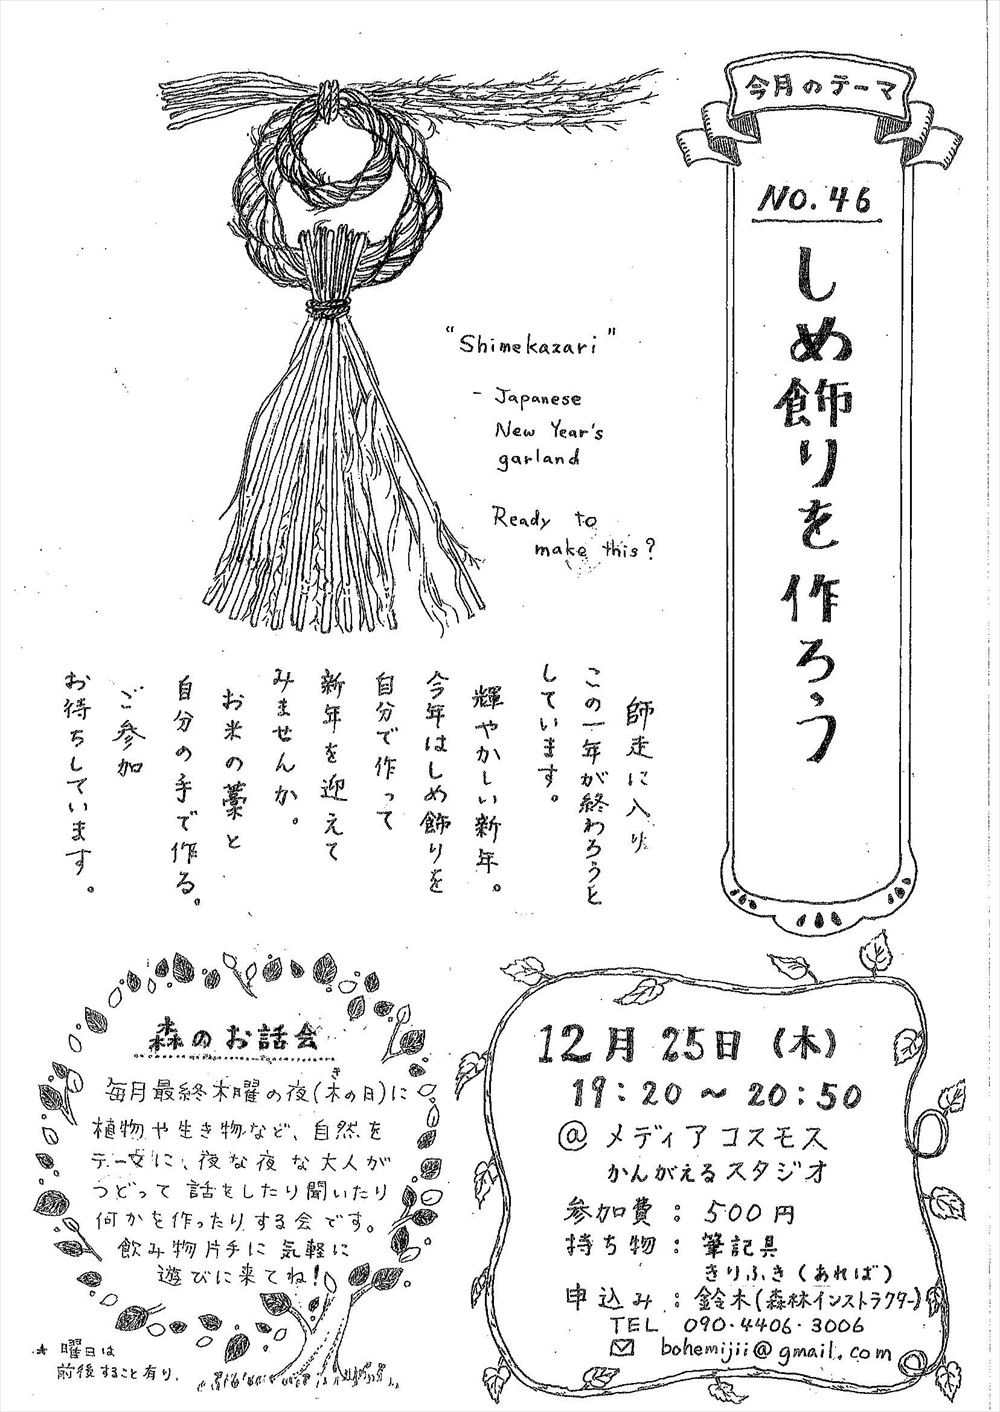 今月のテーマ
No.46
しめ飾りを作ろう
"Shimekazari"
- Japanese
New Year's
garland
Ready to
make this?
師走に入り
この一年が終わろうと
しています。
輝やかしい新年。
今年はしめ飾りを
自分で作って
新年を迎えて
みませんか。
お米の藁と
自分の手で作る。
ご参加
お待ちしています。
森のお話会
毎月最終木曜の夜(木の日)に
き
植物や生き物など、自然を
テーマに、夜な夜な大人が
つどって話をしたり聞いたり
何かを作ったりする会です。
飲み物片手に気軽に
遊びに来てね!
*曜日は
前後すること有り.
12月25日(木)
19:20~20:50
@メディアコスモス
かんがえるスタジオ
参加費:500円
持ち物:筆記具
きりふき(あれば)
申込み:鈴木(森林インストラクター)
TEL 090-4406-3006
bohemijii@gmail.com